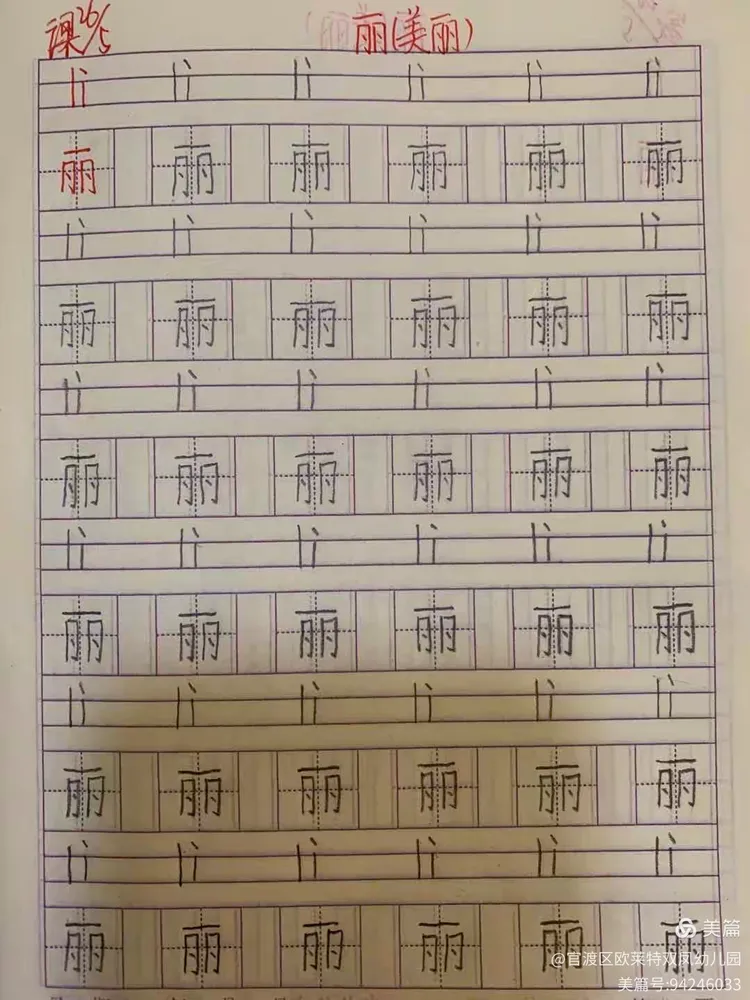 课26/5 丽(美丽)
lì lì lì lì lì lì
丽 丽 丽 丽 丽 丽
lì lì lì lì lì lì
丽 丽 丽 丽 丽 丽
lì lì lì lì lì lì
丽 丽 丽 丽 丽 丽
lì lì lì lì lì lì
丽 丽 丽 丽 丽 丽
lì lì lì lì lì lì
丽 丽 丽 丽 丽 丽
lì lì lì lì lì lì
丽 丽 丽 丽 丽 丽
美篇
@官渡区欧莱特双凤幼儿园
美篇号:94246033